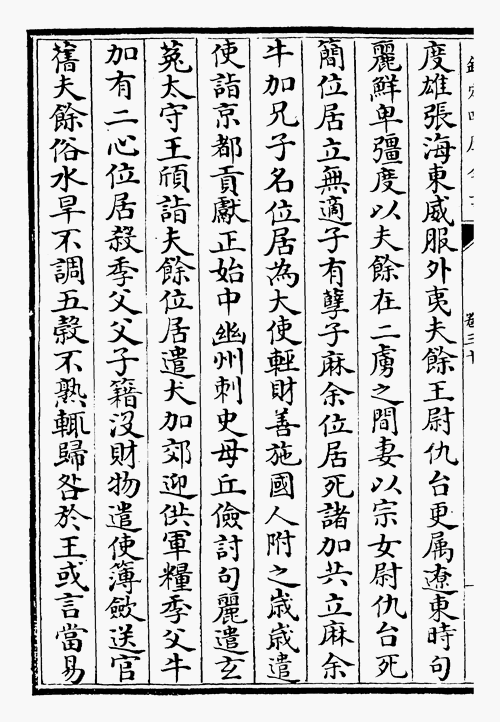 度雄張海東威服外夷夫餘王尉仇台更属遼東時句
麗鮮卑彊度以夫餘在二虜之間妻以宗女尉仇台死
簡位居立無適子有孽子麻余位居死諸加共立麻余
牛加兄子名位居為大使輕財善施國人附之嵗嵗遣
使詣京都貢獻正始中幽州刺史毋丘儉討句麗遣玄
菟太守王頎詣夫餘位居遣犬加郊迎供軍糧季父牛
加有二心位居殺季父父子籍沒財物遣使簿斂送官
舊夫餘俗水旱不調五穀不熟輒歸咎於王或言當易